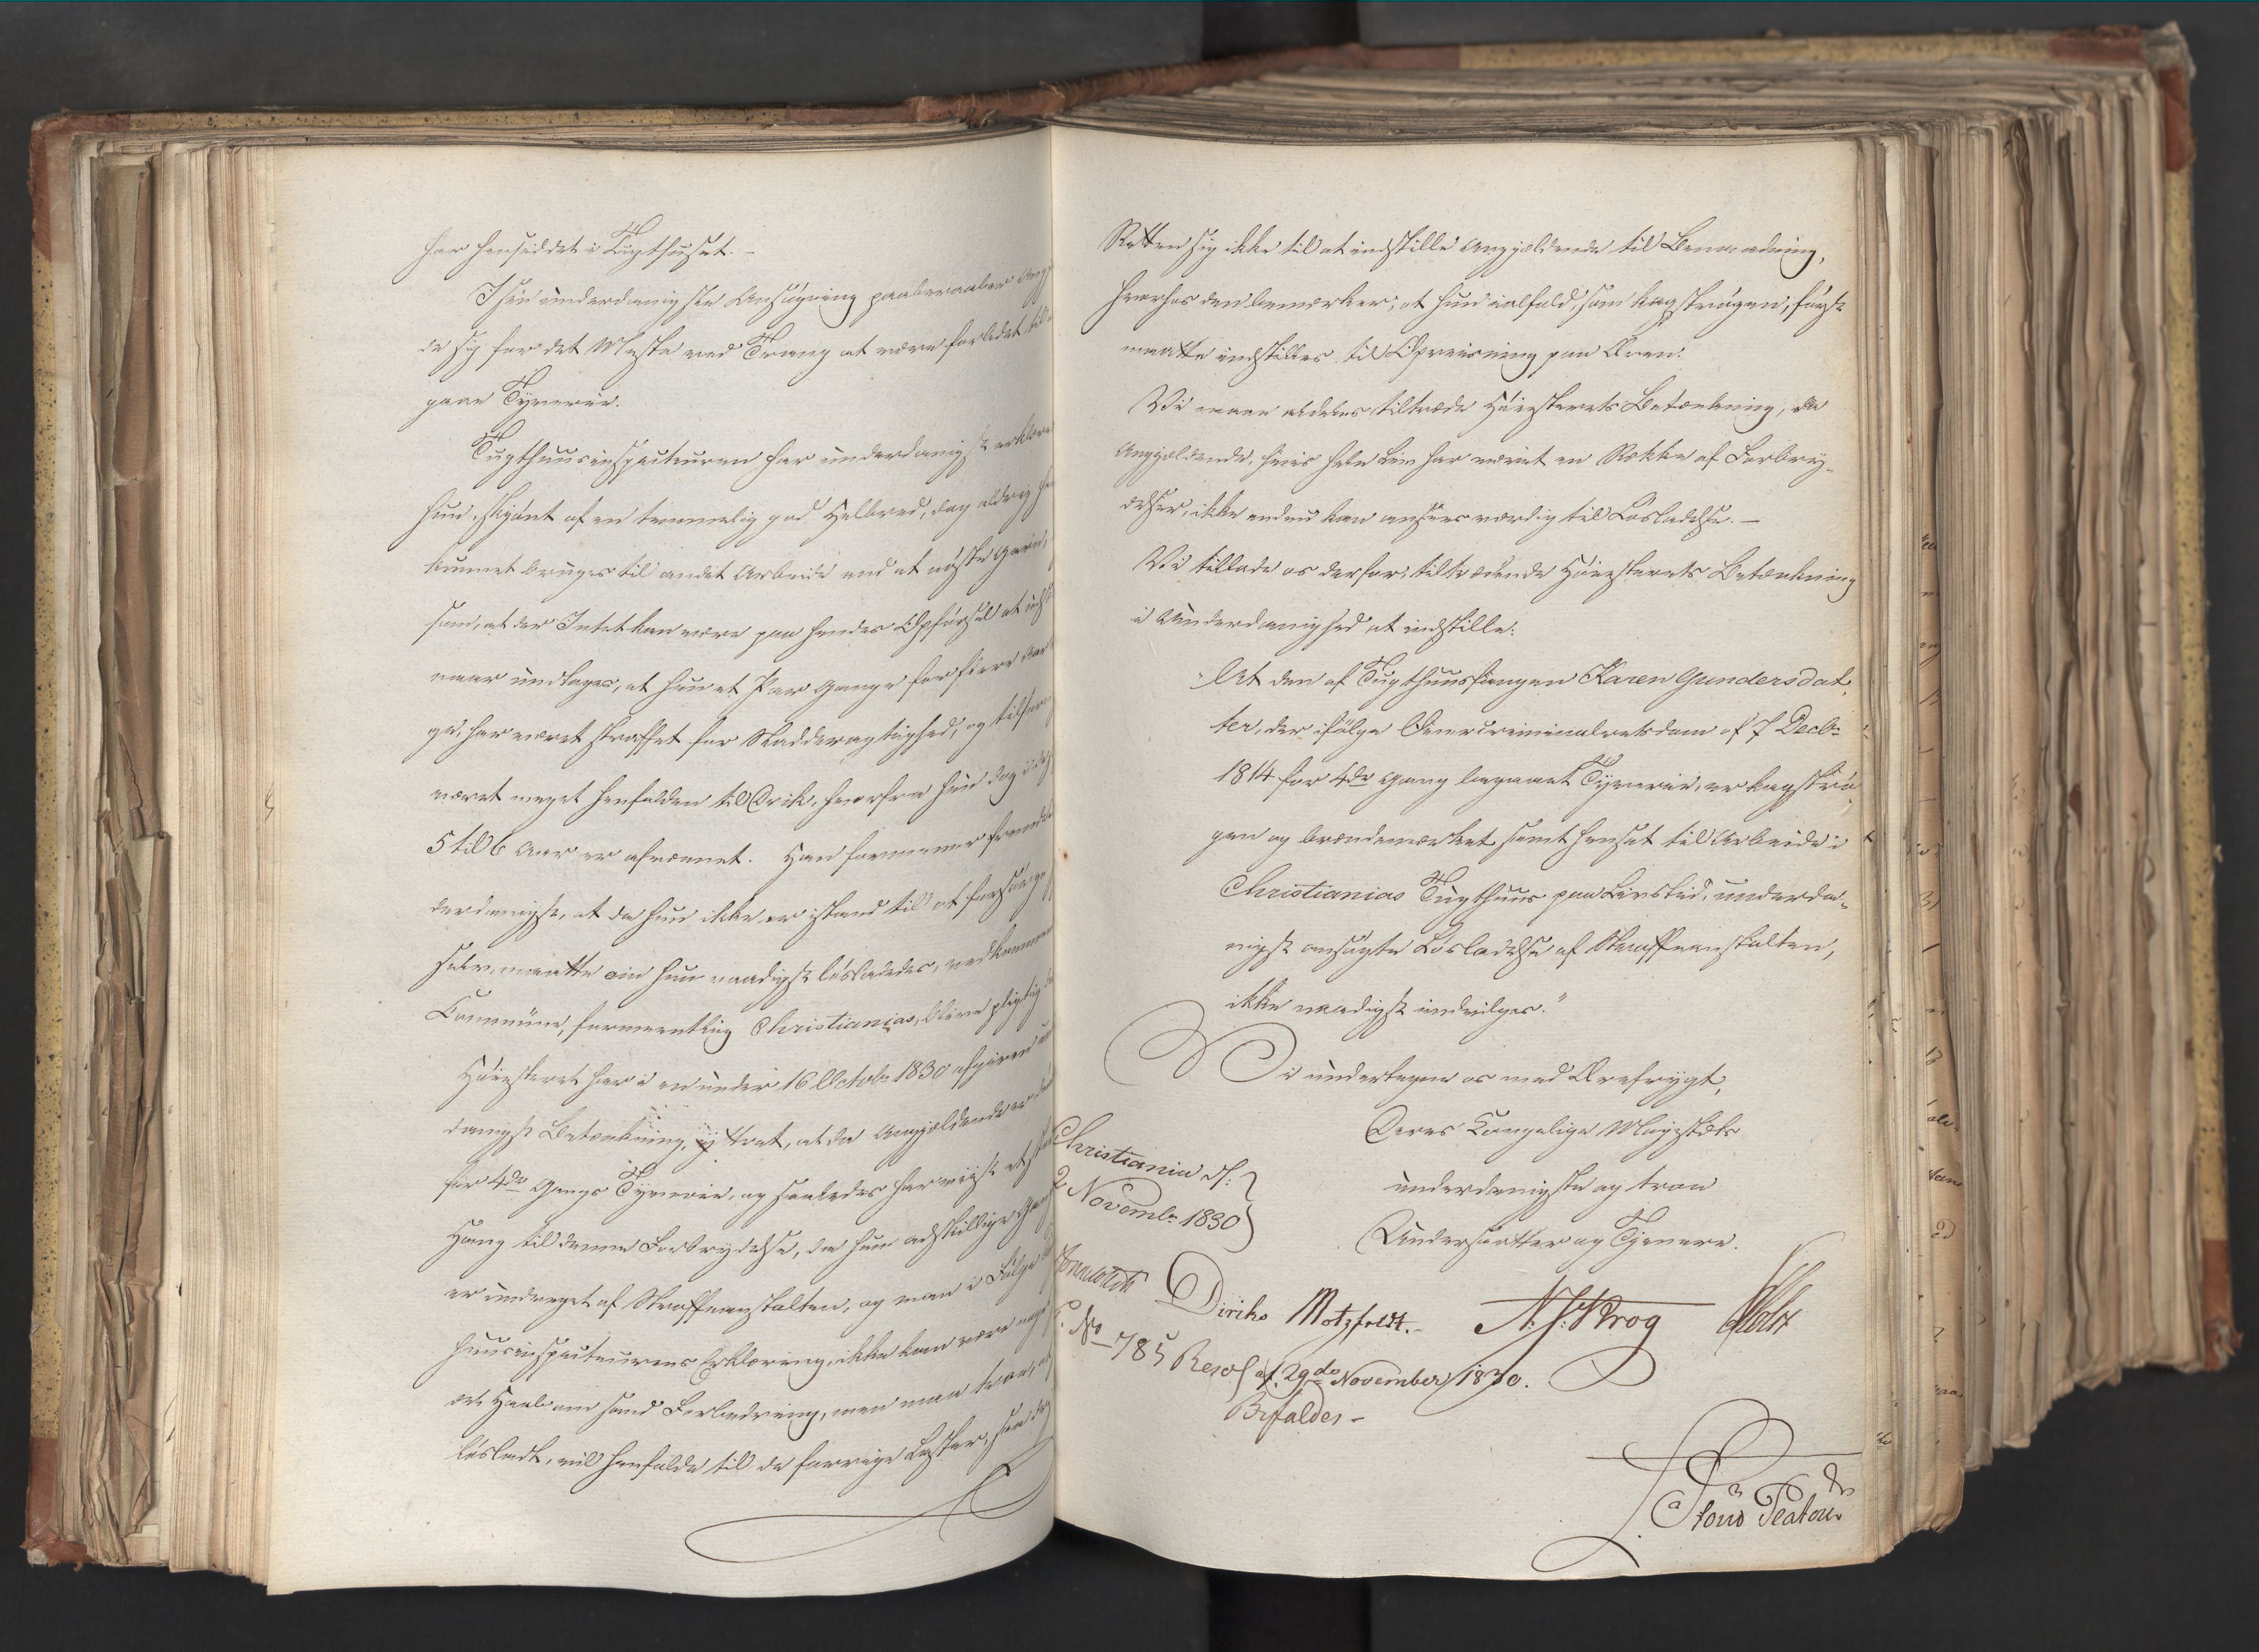 har hensiddet i Tugthuset. –
I sin underdanigste Ansøgning paaberaaber Ang
de sig for det Meste ved Trang at være forledet til
gaae Tyverie.
Tugthuusinspecteuren har underdanigst erklære
hun, skjønt af en temmelig god Helbred, dog aldrig
kunnet bruges til andet Arbeide end at nøste Garn,
som, at der Intet kan være paa hendes Opførsel at uds
naar undtages, at hun et Par Gange for flere Aar
ge, har været straffet for Sladderagtighed, og tilforn
været meget henfalden til Drik, hvorfra hun dog i de
5 til 6 Aar er afvænnet. Han formener fremde
derdanigst, at da hun ikke er istand til at forsørge
selv, maatte om hun naadigst løslades, vedkommen
Commune, formeentlig Christianias, blive pligtig
Høiesteret har i en under 16 Octobr 1830 afgiven un
danigst Betænkning, yttret, at da Angjældende er
for 4de Gangs Tyverie, og saaledes har viist et
Hang til denne Forbrydelse, da hun adskillige Gan
er undveget af Straffeanstalten, og man i Følge
huusinspecteurens Erklæring, ikke kan nære noge
det Haab om sand Forbedring, men man troer, at
løsladt, vil henfalde til de forrige Laster, saa
Retten sig ikke til at indstille Angjældende til Benaadning,
hvorhos den bemærker, at hun ialfald, som kagstrøgen, først
maatte indstilles til Opreisning paa Æren.
Vi maae aldeles tiltræde Høiesterets Betænkning, da
Angjældende, hvis hele Liv har været en Række af Forbry-
delser, ikke endnu kan ansees værdig til Løsladelse. –
Vi tillade os derfor, tiltrædende Høiesterets Betænkning
i Underdanighed at indstille:
"At den af Tugthuusfangen Karen Gundersdat-
ter, der ifølge Overcriminalretsdom af 7 Decbr
1814 for 4de Gang begaaet Tyverie, er kagstrø-
gen og brændemærket samt hensat til Arbeide i
Christianias Tugthuus paa Livstid, underda-
nigst ansøgte Løsladelse af Straffeanstalten,
ikke naadigst indvilges."
Vi undertegne os med Ærefrygt,
Deres Kongelige Majestæts
underdanigste og troe
Undersaatter og Tjenere.
Christiania d:
2 Novembr 1830
Sommerhielm Diriks Motzfeldt. N. J. Krog Holst
P. No 785 Resol af 29de November 1830.
Bifaldes –